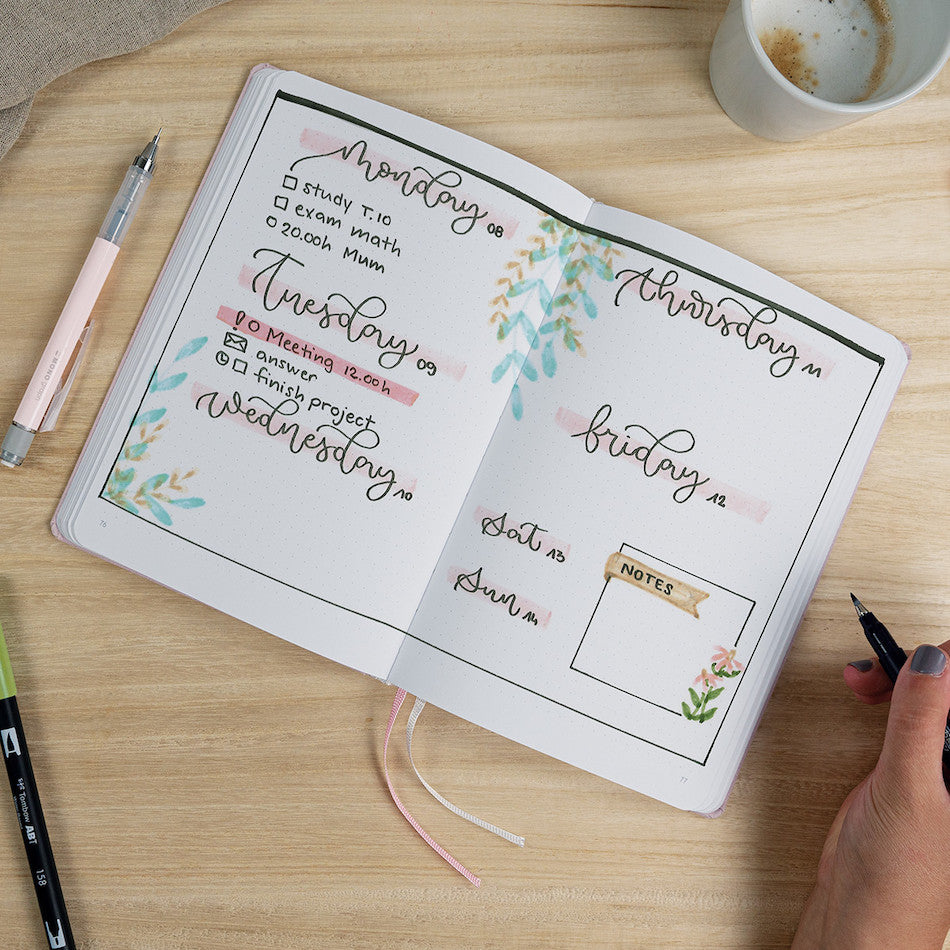 Monday 08
study T.10
exam math
20.00h Mum
Tuesday 09
! Meeting 12.00h
answer
finish project
Wednesday 10
76
Thursday 11
Friday 12
Sat 13
Sun 14
NOTES
77
MONO graph
Tombow ABT
158